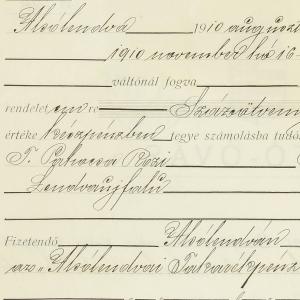 Alsólendva 1910 augusz
1910 november hó 16-
váltónál fogva
rendelet en re Százötven
értéke készpénzben tegye számolásba tudó
T. Rózi
Lendvaujfalu
Fizetendő Alsólendván
az "Alsólendvai Takarékpénz